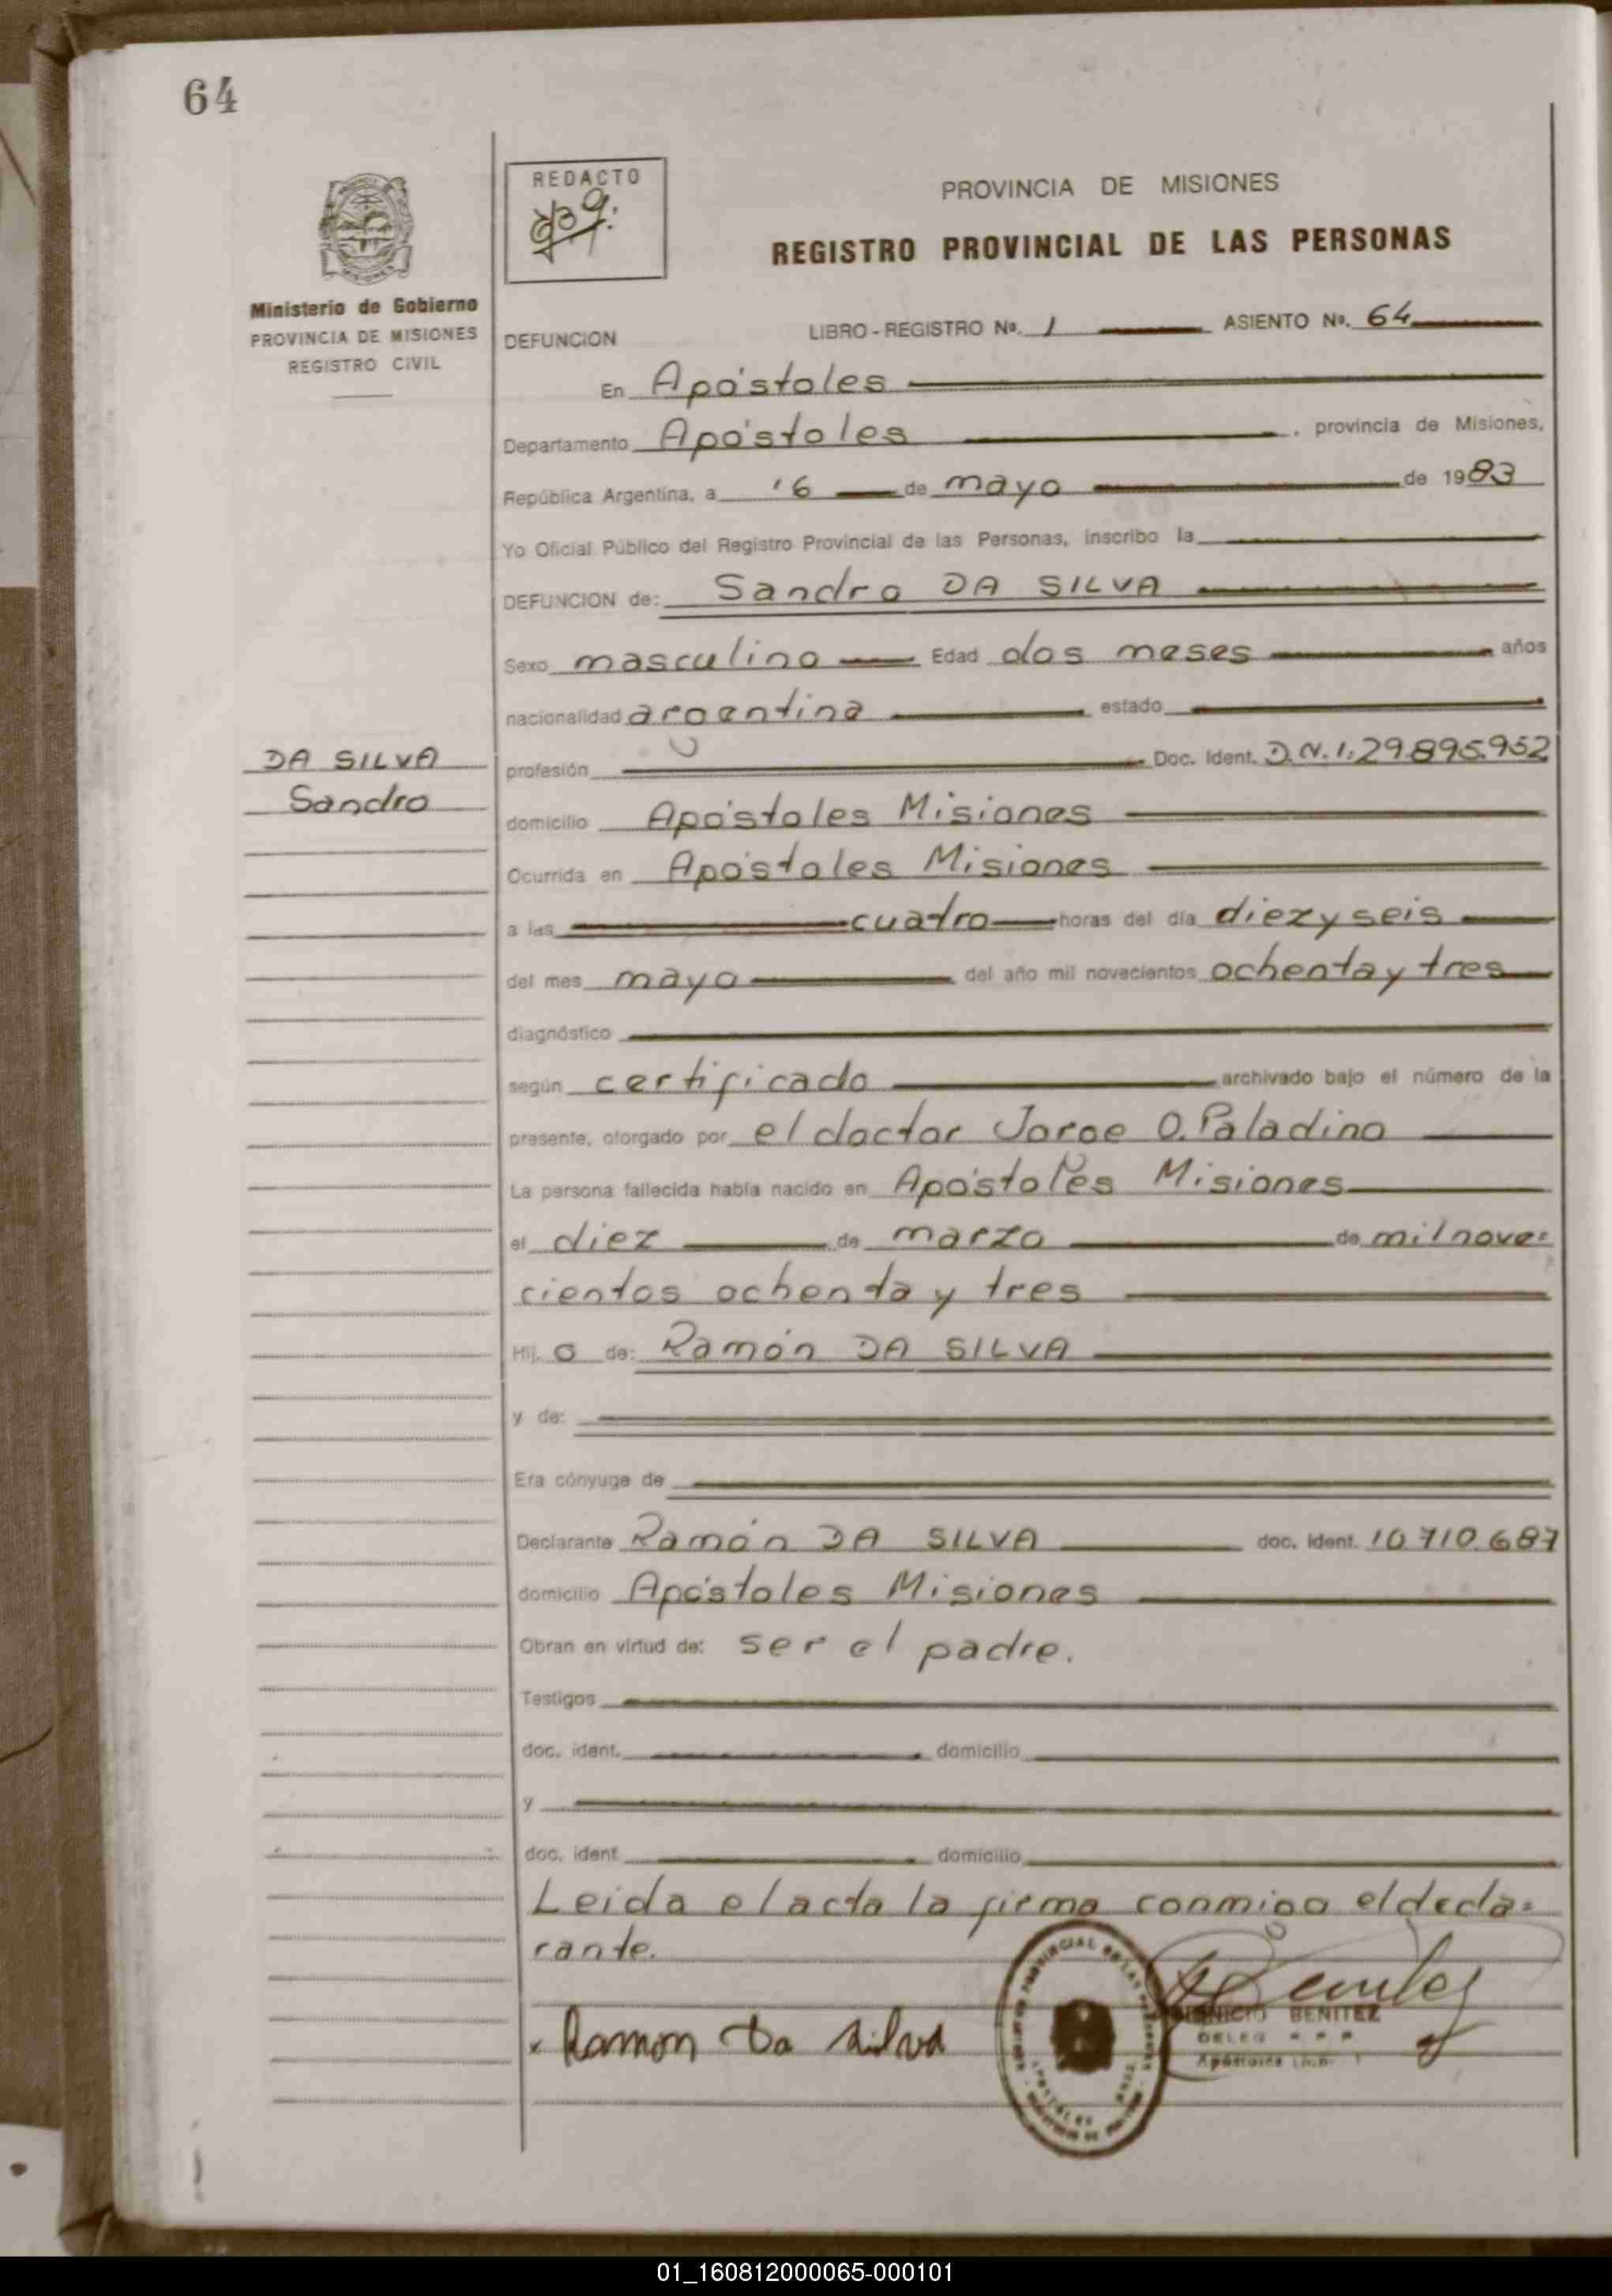 64
REDACTO
PROVINCIA DE MISIONES
REGISTRO PROVINCIAL DE LAS PERSONAS
Ministerio de Gobierno
PROVINCIA DE MISIONES
REGISTRO CIVIL
DEFUNCION LIBRO - REGISTRO Nº. 1 ASIENTO Nº. 64
En Apóstoles
Departamento Apóstoles , provincia de Misiones,
República Argentina, a 16 de mayo de 1983
Yo Oficial Público del Registro Provincial de las Personas, inscribo la
DEFUNCION de: Sandro DA SILVA
Sexo masculino Edad dos meses años
nacionalidad argentina estado
DA SILVA
Sandro
profesión Doc. Ident. D.N.I. 29.895.952
domicilio Apóstoles Misiones
Ocurrida en Apóstoles Misiones
a las cuatro horas del día diez y seis
del mes mayo del año mil novecientos ochenta y tres
diagnóstico
según certificado archivado bajo el número de la
presente, otorgado por el doctor Jorge O. Paladino
La persona fallecida había nacido en Apóstoles Misiones
el diez de marzo de mil nove=
cientos ochenta y tres
Hij o de: Ramón DA SILVA
y de:
Era cónyuge de
Declarante Ramón DA SILVA doc. ident. 10.710.687
domicilio Apóstoles Misiones
Obran en virtud de: ser el padre.
Testigos
doc. ident. domicilio
y
doc. ident. domicilio
Leida el acta la firma conmigo el decla=
rante.
x Ramon Da Silva
BENITEZ
01_160812000065-000101